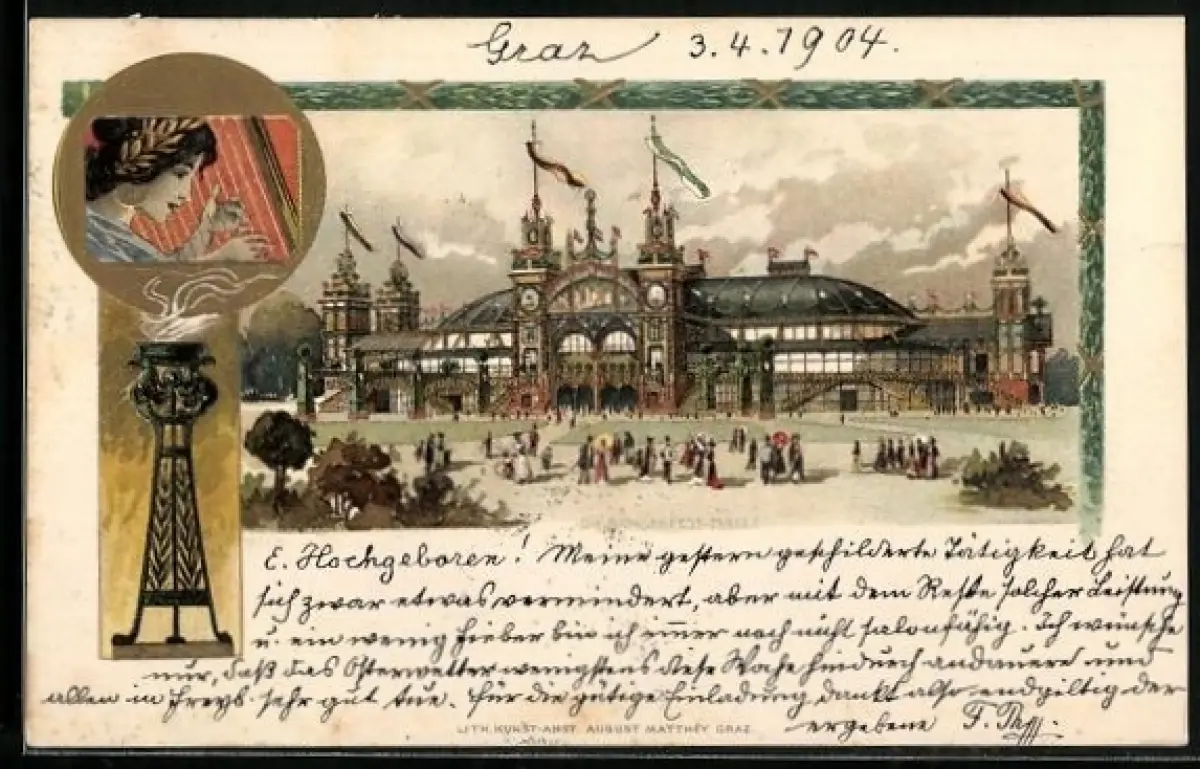 Graz 3.4.1904.
E. Hochgeboren! Meine gestern geschilderte Tätigkeit hat
sich zwar etwas vermindert, aber mit dem Reste solcher Leistung
u. ein wenig Fieber bin ich immer noch nicht salonfähig. Ich wünsche
nur, daß das Osterwetter wenigstens diese Woche hindurch andauere und
allen in Freyb. sehr gut tue. Für die gütige Einladung dankt also endgiltig der
ergebene F.
LITH. KUNST-ANST. AUGUST MATTHEY GRAZ